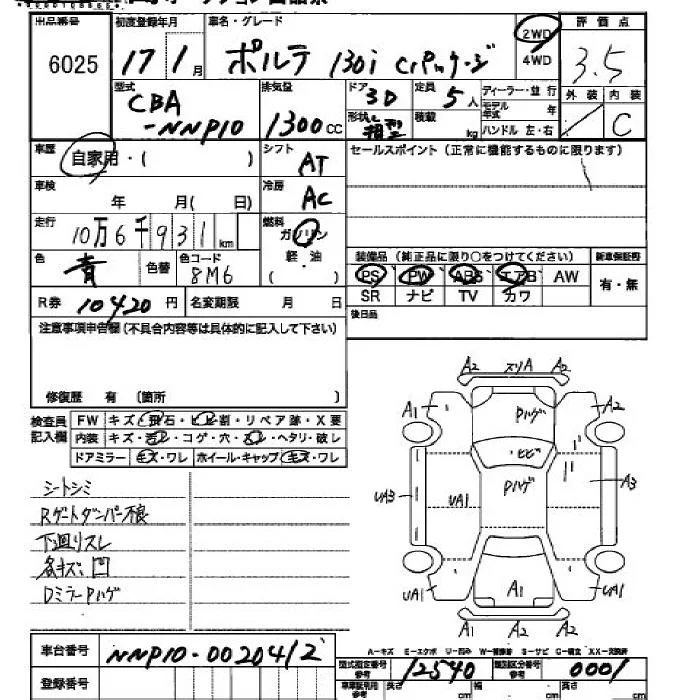 出品番号 初度登録年月 車名・グレード 2WD 評価点
6025 17 1月 ポルテ 130i Cパッケージ 4WD 3.5
型式 排気量 ドア 3D 定員 5人 ディーラー・並行 外装 内装
CBA モデル年式 年 C
-NNP10 1300cc 形状 箱型 積載 kg ハンドル 左・右
車歴 自家用・( ) シフト AT セールスポイント(正常に機能するものに限ります)
車検 年 月( 日) 冷房 AC
走行 10万6千931km 燃料 ガソリン
軽・油
( )
色 青 色替 色コード 8M6 装備品(純正品に限り○をつけてください) 新車保証書
PS PW ABS エアB AW 有・無
R券 10420円 名変期限 月 日 SR ナビ TV カワ
注意事項申告欄(不具合内容等は具体的に記入して下さい) 後日品
修復歴 有 (箇所 )
検査員記入欄 FW キズ・飛石・ヒビ・割・リペア跡・X要
内装 キズ・汚レ・コゲ・穴・スレ・ヘタリ・破レ
ドアミラー キズ・ワレ ホイール・キャップ キズ・ワレ
A2 スリA A2
A1 Pハゲ A2
ヒビ
UA3 UA1 Pハゲ A3
UA1 A1 UA1
A1 A2 A2
シートシミ
Rゲートダンパー不良
下廻りスレ
各キズ凹
DミラーPハゲ
A-キズ E-エクボ U-凹み W-補修跡 S-サビ C-腐食 XX-交換済
車台番号 NNP10-0020412 型式指定番号 12540 類別区分番号 0001
登録番号 長さ cm 幅 cm 高さ cm